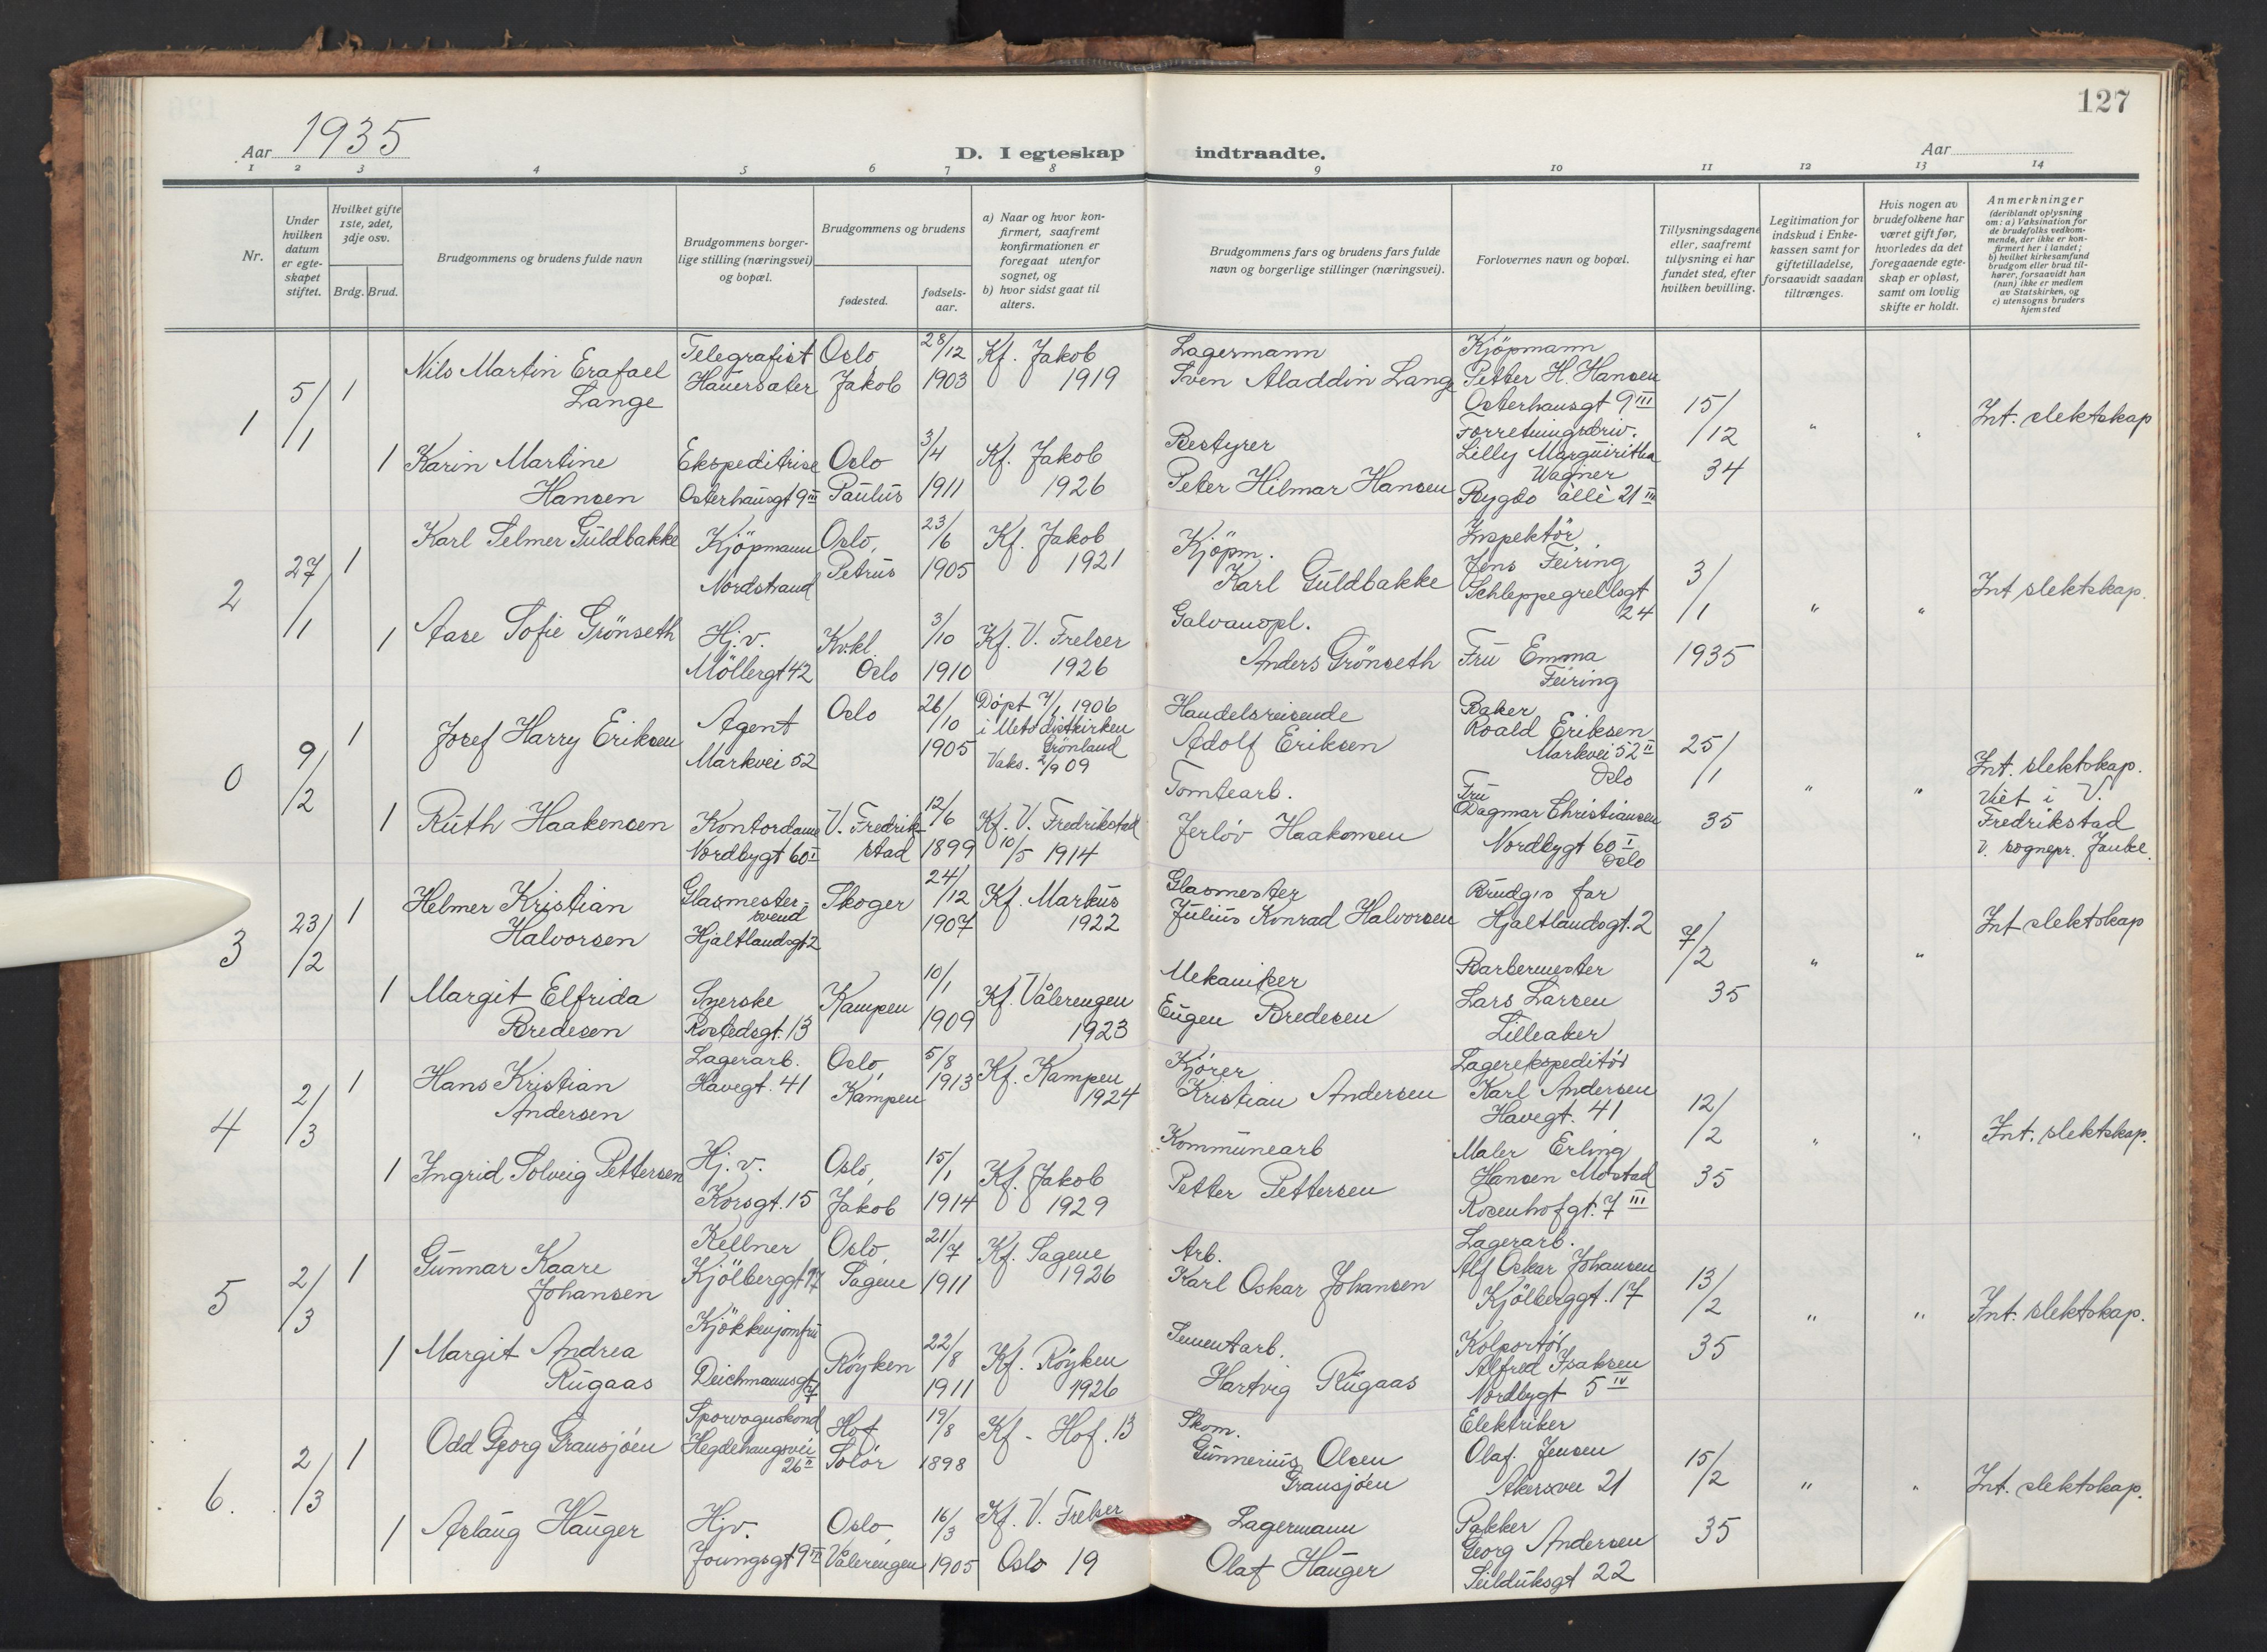 127
Aar 1935
D. I egteskap indtraadte.
Aar
1 2 3 4 5 6 7 8 9 10 11 12 13 14
Nr.
Under hvilken datum er egteskapet stiftet.
Hvilket gifte 1ste, 2det, 3dje osv.
Brdg. Brud.
Brudgommens og brudens fulde navn
Brudgommens borgerlige stilling (næringsvei) og bopæl.
Brudgommens og brudens
fødested.
fødselsaar.
a) Naar og hvor konfirmert, saafremt konfirmationen er foregaat utenfor sognet, og
b) hvor sidst gaat til alters.
Brudgommens fars og brudens fars fulde navn og borgerlige stillinger (næringsvei).
Forlovernes navn og bopæl.
Tillysningsdagene eller, saafremt tillysning ei har fundet sted, efter hvilken bevilling.
Legitimation for indskud i Enkekassen samt for giftetilladelse, forsaavidt saadan tiltrænges.
Hvis nogen av brudefolkene har været gift før, hvorledes da det foregaaende egteskap er opløst, samt om lovlig skifte er holdt.
Anmerkninger
(deriblandt oplysning om: a) Vaksination for de brudefolks vedkommende, der ikke er konfirmert her i landet;
b) hvilket kirkesamfund brudgom eller brud tilhører, forsaavidt han (hun) ikke er medlem av Statskirken, og
c) utensogns bruders hjemsted
1 5/1 1
Nils Martin Erafael Lange
Telegrafist Hauersæter
Oslo, Jakob
28/12 1903
Kf. Jakob 1919
Lagermann Sven Aladdin Lange
Kjöpmann Petter H. Hansen Osterhausgt 9 III
15/12 34
" "
Int. slektskap
1 Karin Martine Hansen
Ekspeditrise Osterhausgt 9 III
Oslo Paulus
3/4 1911
Kf. Jakob 1926
Bestyrer Peter Hilmar Hansen
Forretningsdriv. Lilly Marguiritha Wagner Bygdo allè 21 III
2 27/1 1
Karl Selmer Guldbakke
Kjöpmann Nordstrand
Oslo, Petrus
23/6 1905
Kf. Jakob 1921
Kjöpm. Karl Guldbakke
Inspektör Jens Feiring Schleppegrellsgt 24
3/1 1935
" "
Int slektskap.
1 Aase Sofie Grönseth
Hj.v. Möllergt 42
Kv.kl. Oslo
3/10 1910
Kf. V. Frelser 1926
Galvanopl. Anders Grönseth
Fru Emma Feiring
0 9/2 1
Josef Harry Eriksen
Agent Markvei 52
Oslo
26/10 1905
Döpt 7/1 1906 i Metodistkirken Grönland Vaks. 2/9 09
Handelsreisende Adolf Eriksen
Baker Roald Eriksen Markvei 52 II Oslo
25/1 35
" "
Int. slektskap. Viet i V. Fredrikstad v. sognepr.
1 Ruth Haakensen
Kontordame Nordbygt 60 I
V. Fredrikstad
12/6 1899
Kf. V. Fredrikstad 10/5 1914
Tomtearb. Jerlöv Haakonsen
Fru Dagmar Christiansen Nordbygt 60 I Oslo
3 23/2 1
Helmer Kristian Halvorsen
Glasmester-svend Hjaltlandsgt 2
Skoger
24/12 1907
Kf. Markus 1922
Glasmester Julius Konrad Halvorsen
Brudg.s far Hjaltlandsgt. 2
7/2 35
" "
Int slektskap
1 Margit Elfrida Bredesen
Syerske Rostedsgt. 13
Kampen
10/1 1909
Kf. Vålerengen 1923
Mekaniker Eugen Bredesen
Barbermester Lars Larsen Lilleaker
4 2/3 1
Hans Kristian Andersen
Lagerarb. Havegt. 41
Oslo, Kampen
5/8 1913
Kf. Kampen 1924
Kjörer Kristian Andersen
Lagerekspeditör Karl Andersen Havegt. 41
12/2 35
" "
Int. slektskap.
1 Ingrid Solveig Pettersen
Hj.v. Korsgt. 15
Oslo, Jakob
15/1 1914
Kf. Jakob 1929
Kommunearb Petter Pettersen
Maler Erling Hansen Mostad Rosenhofgt. 7 III
5 2/3 1
Gunnar Kaare Johansen
Kellner Kjölberggt 17
Oslo, Sagene
21/7 1911
Kf. Sagene 1926
Arb. Karl Oskar Johansen
Lagerarb. Alf Oskar Johansen Kjölberggt. 17
13/2 35
" "
Int. slektskap.
1 Margit Andrea Rugaas
Kjökkenjomfru Deichmannsgt 7
Röyken
22/8 1911
Kf. Röyken 1926
Sementarb. Hartvig Rugaas
Kolportör Alfred Isaksen Nordbygt 5 IV
6. 2/3 1
Odd Georg Gransjöen
Sporvognskond Hegdehaugsvei 26 II
Hof Solör
19/8 1898
Kf - Hof. 13
Skom. Gunnerius Olsen Gransjöen
Elektriker Olaf. Jensen Akersvei 21
15/2 35
" "
Int. slektskap.
1 Aslaug Hauger
Hjv. Youngsgt 9 III
Oslo, Vålerengen
16/3 1905
Kf. V. Frelser Oslo 19
Lagermann Olaf Hauger
Pakker Georg Andersen Seilduksgt 22